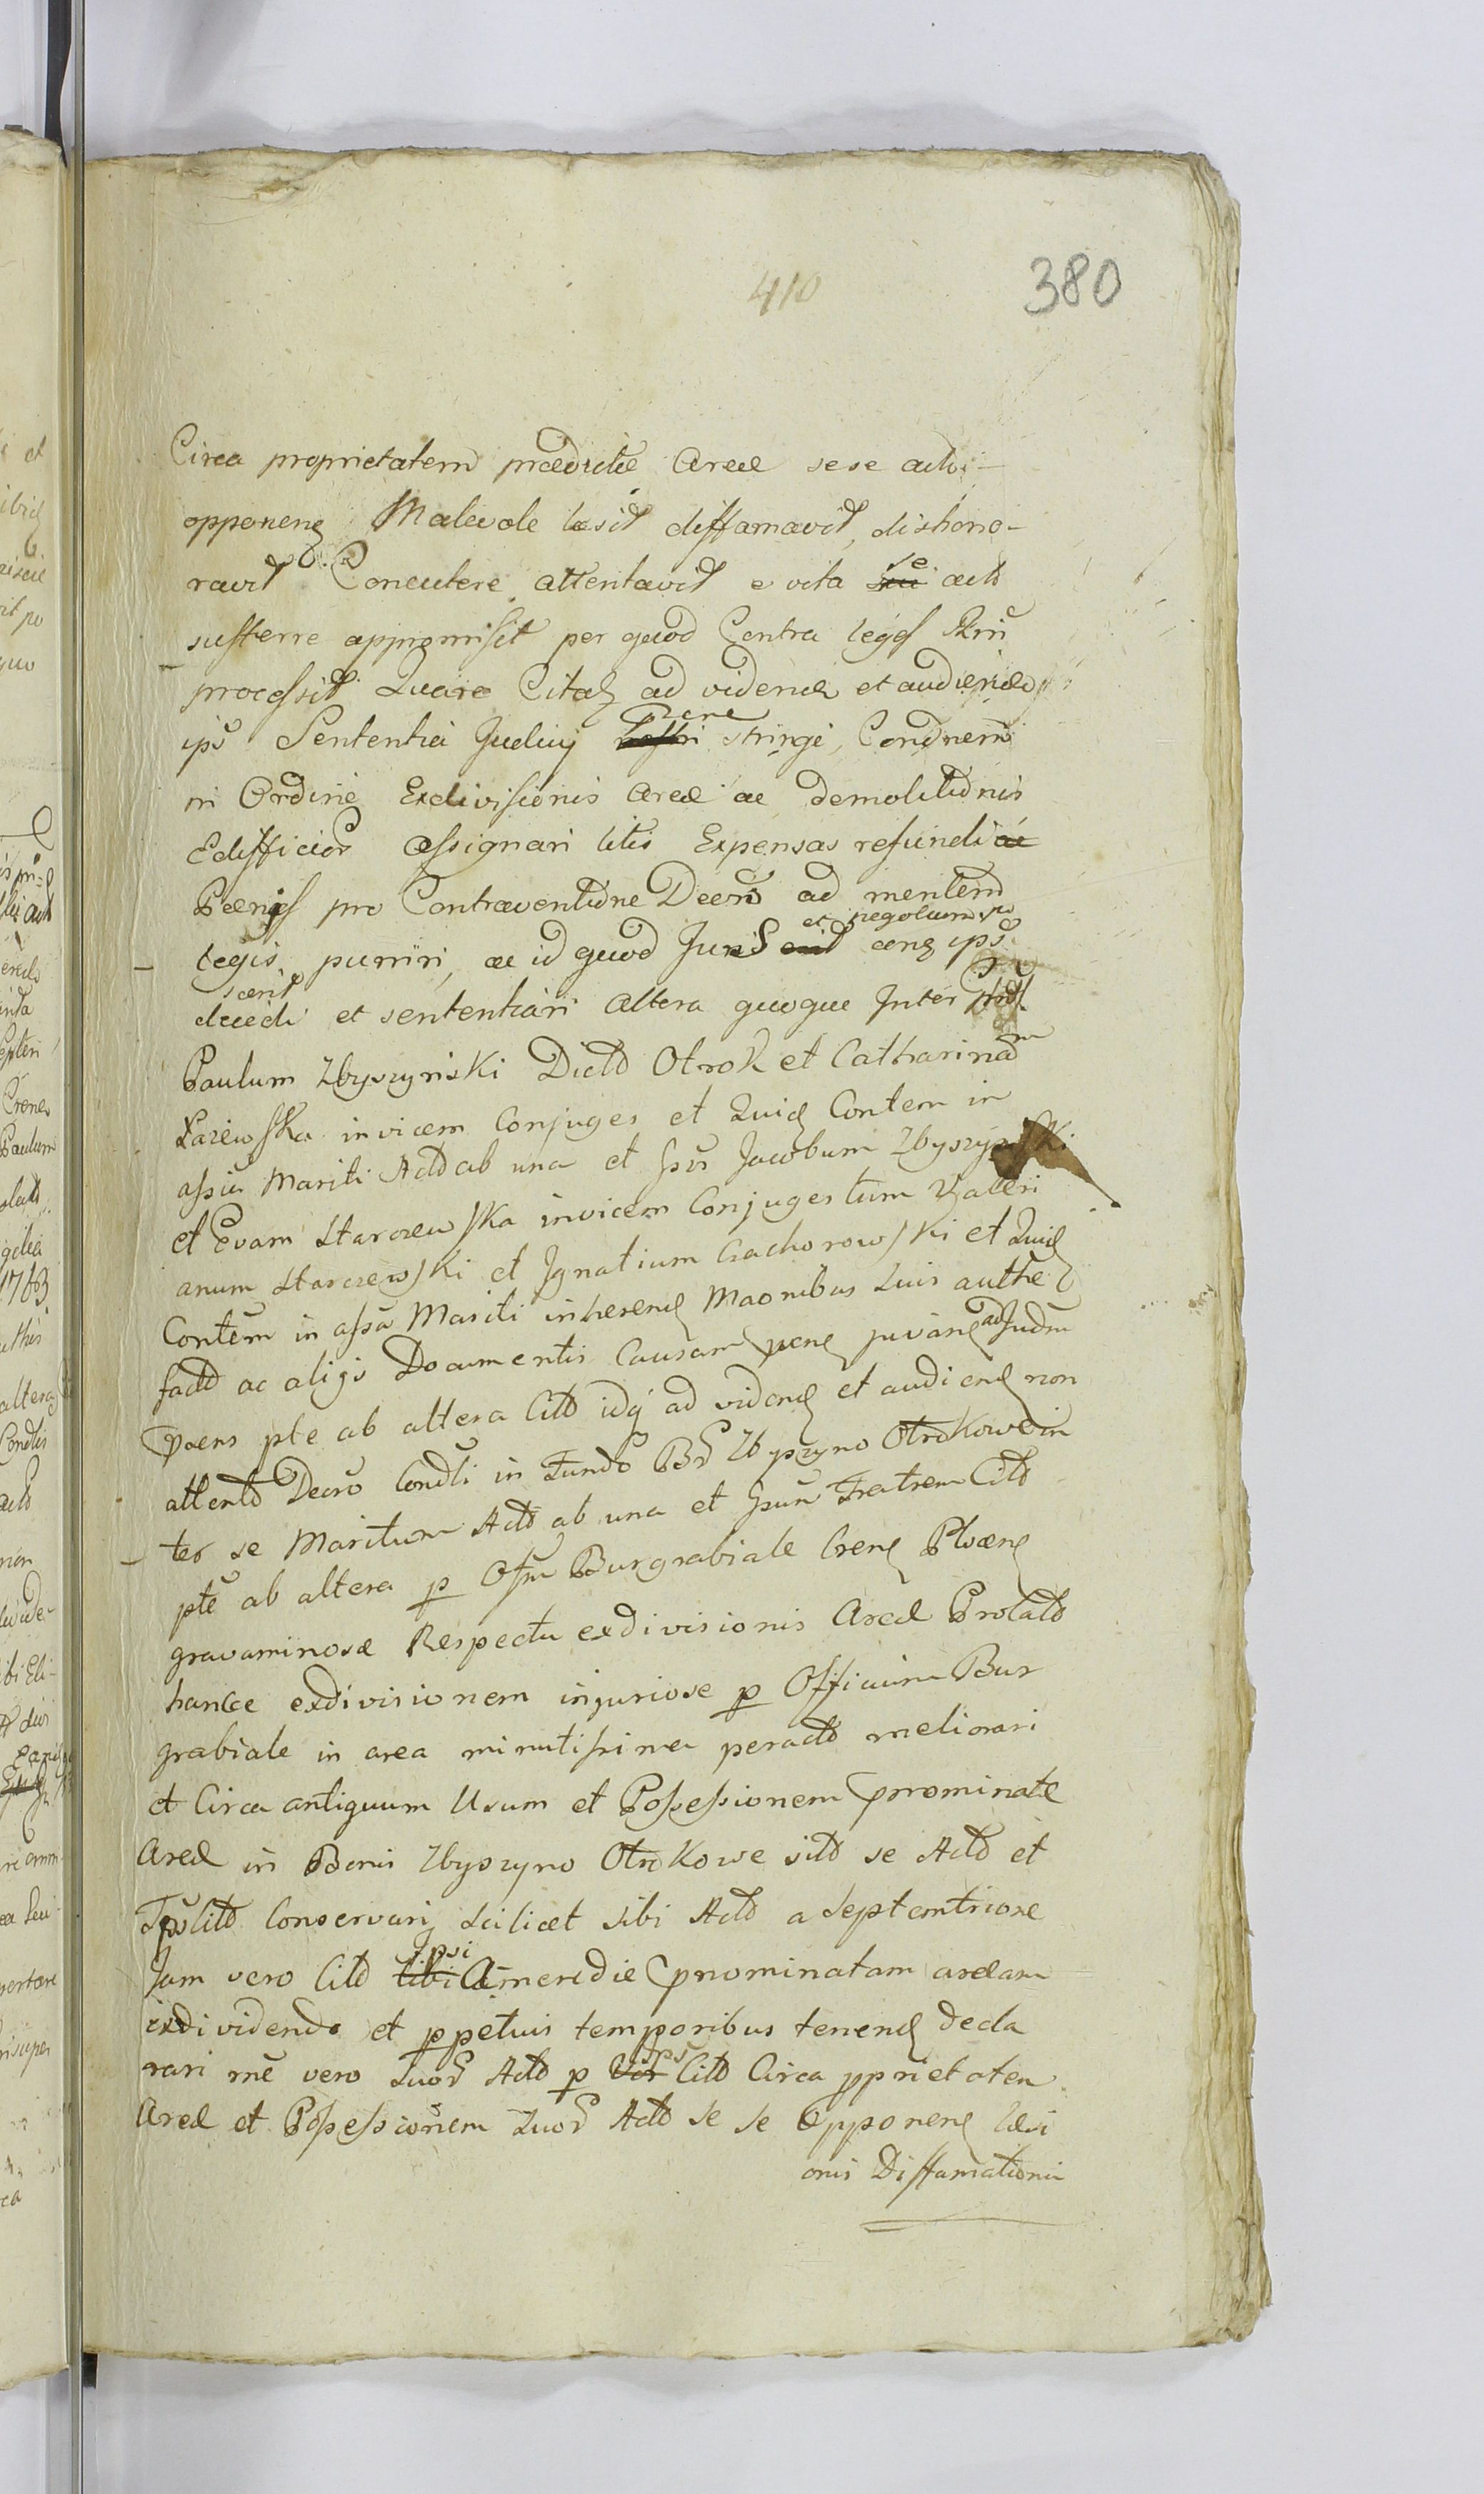 410 380
Circa proprietatem prædictæ Areæ sese acto-
opponens Malevole læsit diffamavit, dishono-
ravit Concutere attentavit e vita se acto
sufferre appromisit per quod Contra leges Rni
processit Quare Citat ad videnđ et audiendũ
ips Sententia Judicij Pene stringi, Condnem
in Ordine Exdivisionis Areæ ac demolitionis
Edifficior Assignari litis Expensas refundi ac
Pænis pro Contraventione Decro ad mentem
legis puniri, ac id quod Juris et negotium
ducedi et sententiari Altera quoque Inter
Paulum Zbyszyński Dicto Otrok et Catharinam
Łazewska invicem Conjuges et Quid Contem in
assia Mariti Acto ab una et Jacobum Zbyszyński
et Evam Starczewska invicem Conjuges tum Valeri
anum Starczewski et Ignatium Czachorowski et Quid
Contem in assa Mariti inherend Maonibus suis authe
facto ac alijs Documentis Causam pene juvand ad Judm
pte ab altera Cito idq ad vidend et audiend non
attento Decro Condti in Fundo Bo Zbyszyno Otrokowe in
ter se Maritum Acto ab una et Fratrem Cito
pte ab altera p Ofm Burgrabiale Crene Ploceñ
gravaminose Respectu exdivisionis Areæ Prolato
hance exdivisionem injuriose p Officium Bur
grabiale in area minutissima peracto meliorari
et Circa antiquum Usum et Possessionem prominatæ
Areæ in Bonis Zbyszyno Otrokowe sito se Acto et
Cito Conservari scilicet sibi Acto a Septemtrione
Jam vero Cito ipsi A meredie pnominatam aream
exdividendo et ppetuis temporibus tenend decla
rari me vero Quod Acto p ips Cito Circa pprietatem
Areæ et Possessionem Quod Acto se se Opponend læsi
onis Diffamationis